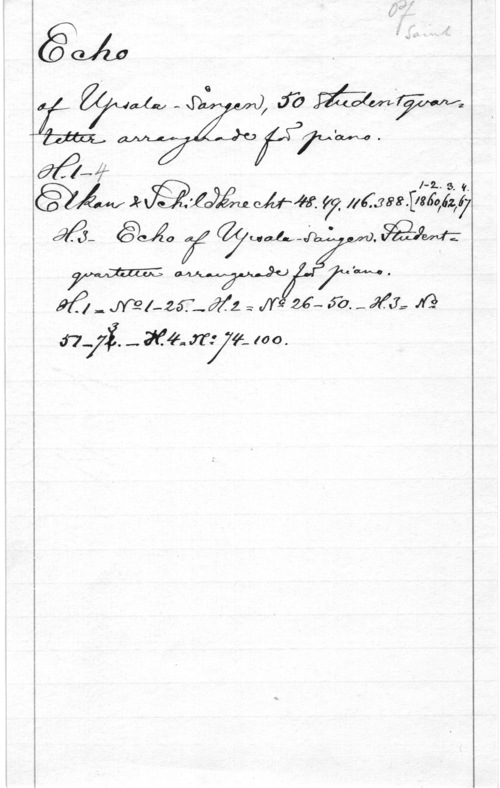 Of
Saml
Echo
af Upsala-Sången, 50 Studentqvar=
tetter arrangerade för piano.
H.1-4
1-2. 3. 4.
Elkan & Schildknecht 48. 49. 116. 388. [1860,62,67
H.3- Echo af Upsala-Sången. Student=
qvartetter arrangerade för piano.
H.1 = Nº 1-25. - H.2 = Nº 26-50. - H.3= Nº
51-73. - H.4=Nº 74-100.